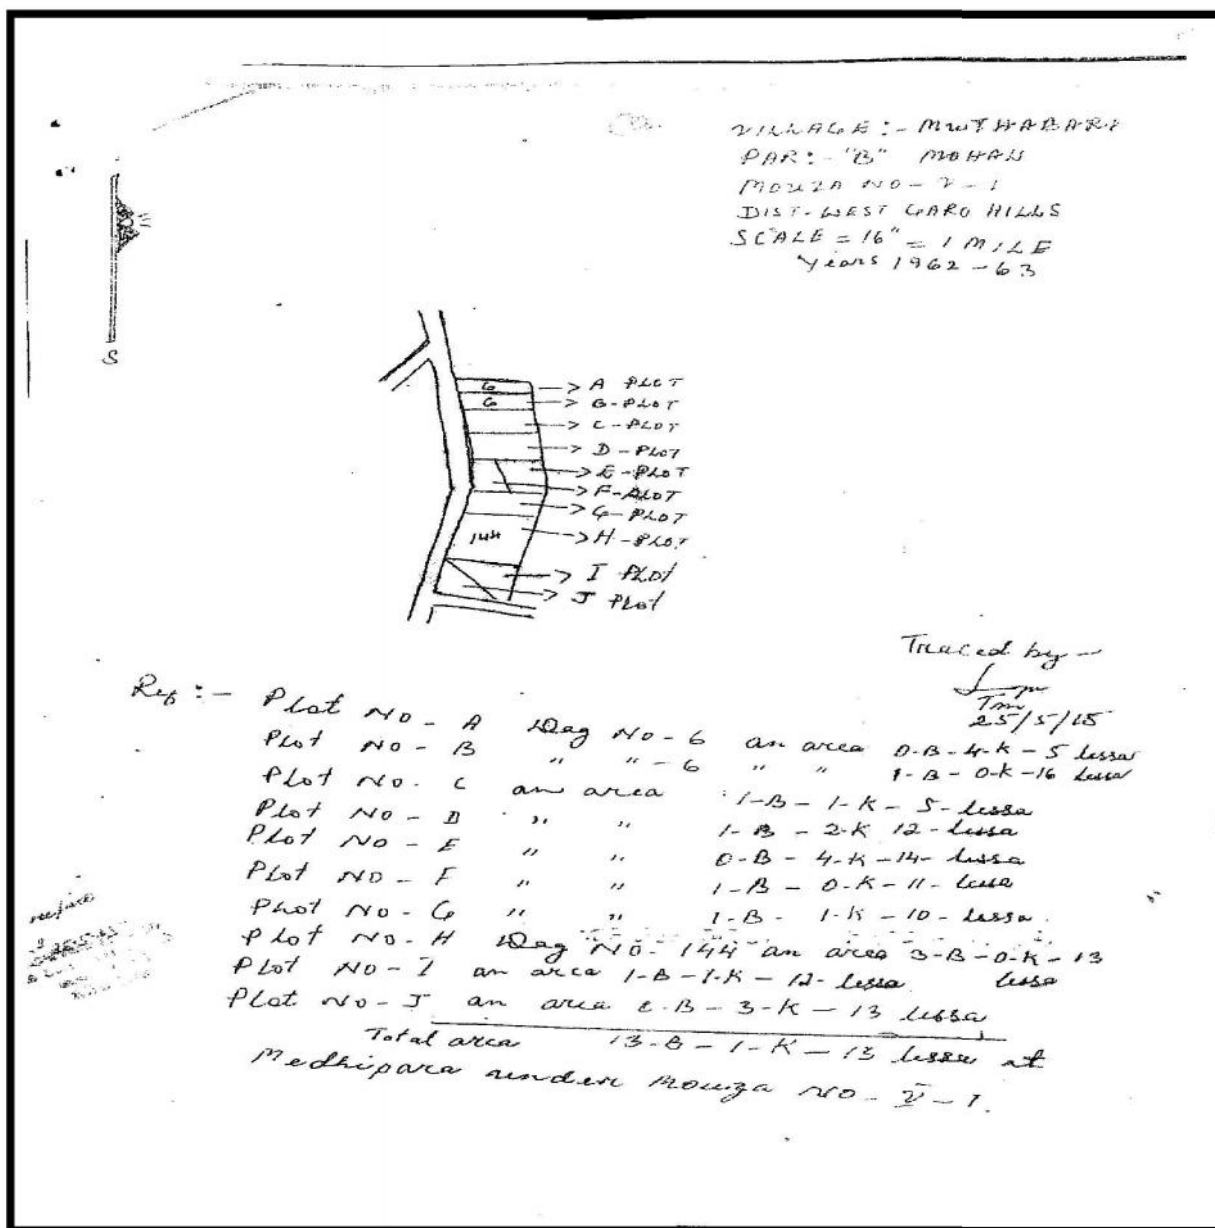 VILLAGE :- MWTHABARI
PAR :- "B" MOHAN
MOUZA NO - V - 1
DIST - WEST GARO HILLS
SCALE = 16" = 1 MILE
Years 1962 - 63
S
6 → A PLOT
6 → B - PLOT
→ C - PLOT
→ D - PLOT
→ E - PLOT
→ F - PLOT
→ G - PLOT
144 → H - PLOT
→ I PLOT
→ J PLOT
Traced by -
25/5/15
Ref :- Plot NO - A Dag NO - 6 an area 0-B-4-K-5 lessa
Plot NO - B " " - 6 " " 1-B-0-K-16 lessa
Plot NO - C an area 1-B-1-K-5-lessa
Plot NO - D " " 1-B-2-K 12-lessa
Plot NO - E " " 0-B-4-K-14-lessa
Plot NO - F " " 1-B-0-K-11-lessa
Plot NO - G " " 1-B-1-K-10-lessa
Plot NO - H Dag NO - 144 an area 3-B-0-K-13 lessa
Plot NO - I an area 1-B-1-K-12-lessa
Plot NO - J an area -B-3-K-13 lessa
Total area 13-B-1-K-13 lessa at
Medhipara under Mouza NO - V - 1.